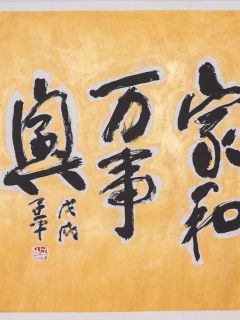 家和
万事
興
戊戌